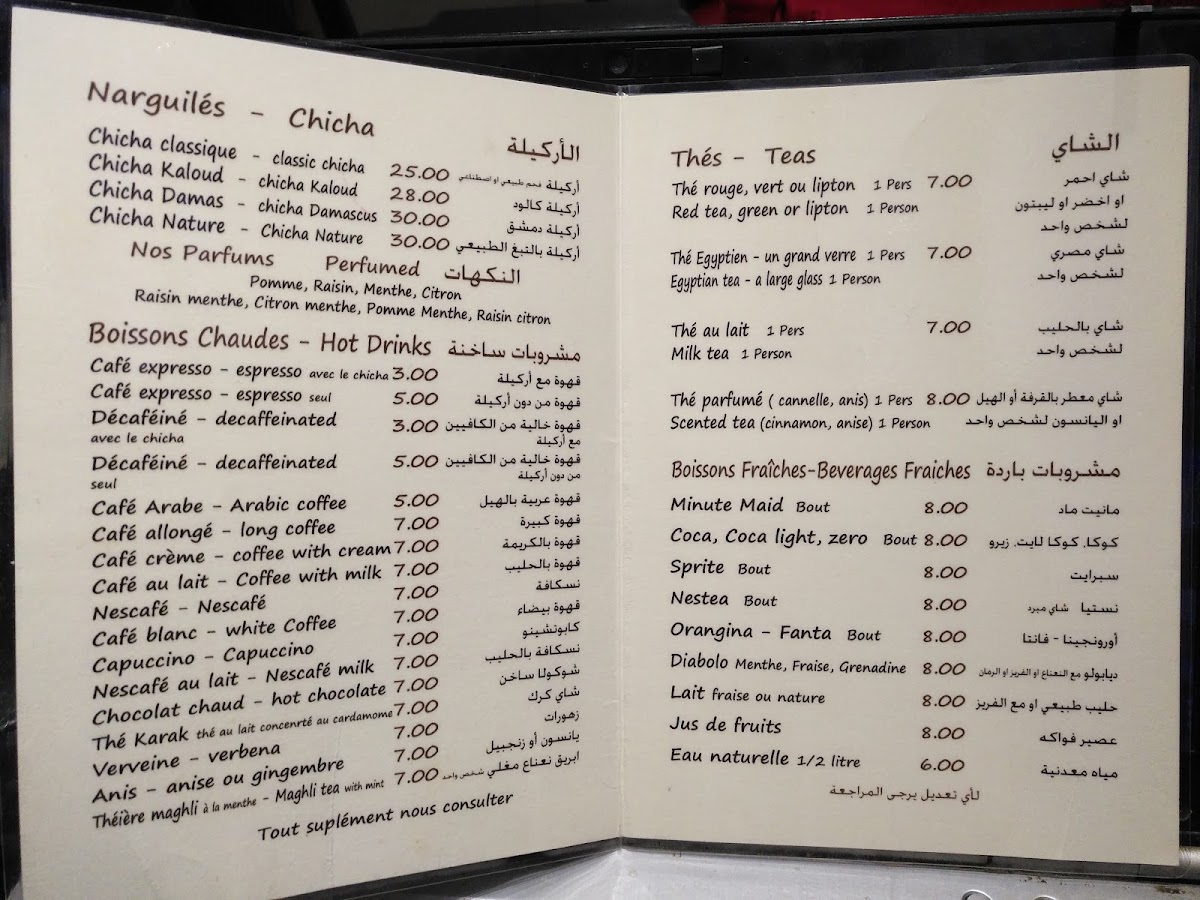 Narguilés - Chicha الأركيلة
Chicha classique - classic chicha 25.00 أركيلة فحم طبيعي او اصطناعي
Chicha Kaloud - chicha Kaloud 28.00 أركيلة كالود
Chicha Damas - chicha Damascus 30.00 أركيلة دمشق
Chicha Nature - Chicha Nature 30.00 أركيلة بالتبغ الطبيعي
Nos Parfums Perfumed النكهات
Pomme, Raisin, Menthe, Citron
Raisin menthe, Citron menthe, Pomme Menthe, Raisin citron
Boissons Chaudes - Hot Drinks مشروبات ساخنة
Café expresso - espresso avec le chicha 3.00 قهوة مع أركيلة
Café expresso - espresso seul 5.00 قهوة من دون أركيلة
Décaféiné - decaffeinated 3.00 قهوة خالية من الكافيين
avec le chicha مع أركيلة
Décaféiné - decaffeinated 5.00 قهوة خالية من الكافيين
seul من دون أركيلة
Café Arabe - Arabic coffee 5.00 قهوة عربية بالهيل
Café allongé - long coffee 7.00 قهوة كبيرة
Café crème - coffee with cream 7.00 قهوة بالكريمة
Café au lait - Coffee with milk 7.00 قهوة بالحليب
Nescafé - Nescafé 7.00 نسكافة
Café blanc - white Coffee 7.00 قهوة بيضاء
Capuccino - Capuccino 7.00 كابوتشينو
Nescafé au lait - Nescafé milk 7.00 نسكافة بالحليب
Chocolat chaud - hot chocolate 7.00 شوكولا ساخن
Thé Karak thé au lait concenrté au cardamome 7.00 شاي كرك
Verveine - verbena 7.00 زهورات
Anis - anise ou gingembre 7.00 يانسون أو زنجبيل
Théière maghli à la menthe - Maghli tea with mint 7.00 ابريق نعناع مغلي شخص واحد
Tout suplément nous consulter
Thés - Teas الشاي
Thé rouge, vert ou lipton 1 Pers 7.00 شاي احمر
Red tea, green or lipton 1 Person او اخضر او ليبتون
لشخص واحد
Thé Egyptien - un grand verre 1 Pers 7.00 شاي مصري
Egyptian tea - a large glass 1 Person لشخص واحد
Thé au lait 1 Pers 7.00 شاي بالحليب
Milk tea 1 Person لشخص واحد
Thé parfumé ( cannelle, anis) 1 Pers 8.00 شاي معطر بالقرفة أو الهيل
Scented tea (cinnamon, anise) 1 Person او اليانسون لشخص واحد
Boissons Fraîches-Beverages Fraiches مشروبات باردة
Minute Maid Bout 8.00 مانيت ماد
Coca, Coca light, zero Bout 8.00 كوكا، كوكا لايت، زيرو
Sprite Bout 8.00 سبرايت
Nestea Bout 8.00 نستيا شاي مبرد
Orangina - Fanta Bout 8.00 أورونجينا - فانتا
Diabolo Menthe, Fraise, Grenadine 8.00 ديابولو مع النعناع او الفريز او الرمان
Lait fraise ou nature 8.00 حليب طبيعي او مع الفريز
Jus de fruits 8.00 عصير فواكه
Eau naturelle 1/2 litre 6.00 مياه معدنية
لأي تعديل يرجى المراجعة